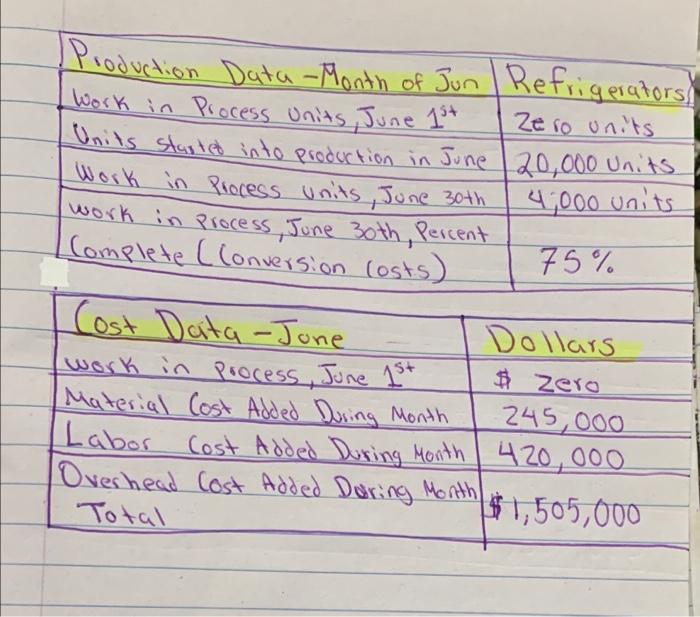 Production Data - Month of Jun Refrigerators
Work in Process Units, June 1st Zero units
Units started into production in June 20,000 Units
Work in Process units, June 30th 4,000 units
work in process, June 30th, Percent
Complete (Conversion Costs) 75%
Cost Data - June Dollars
work in process, June 1st $ zero
Material Cost Added During Month 245,000
Labor Cost Added During Month 420,000
Overhead Cost Added During Month
Total $1,505,000